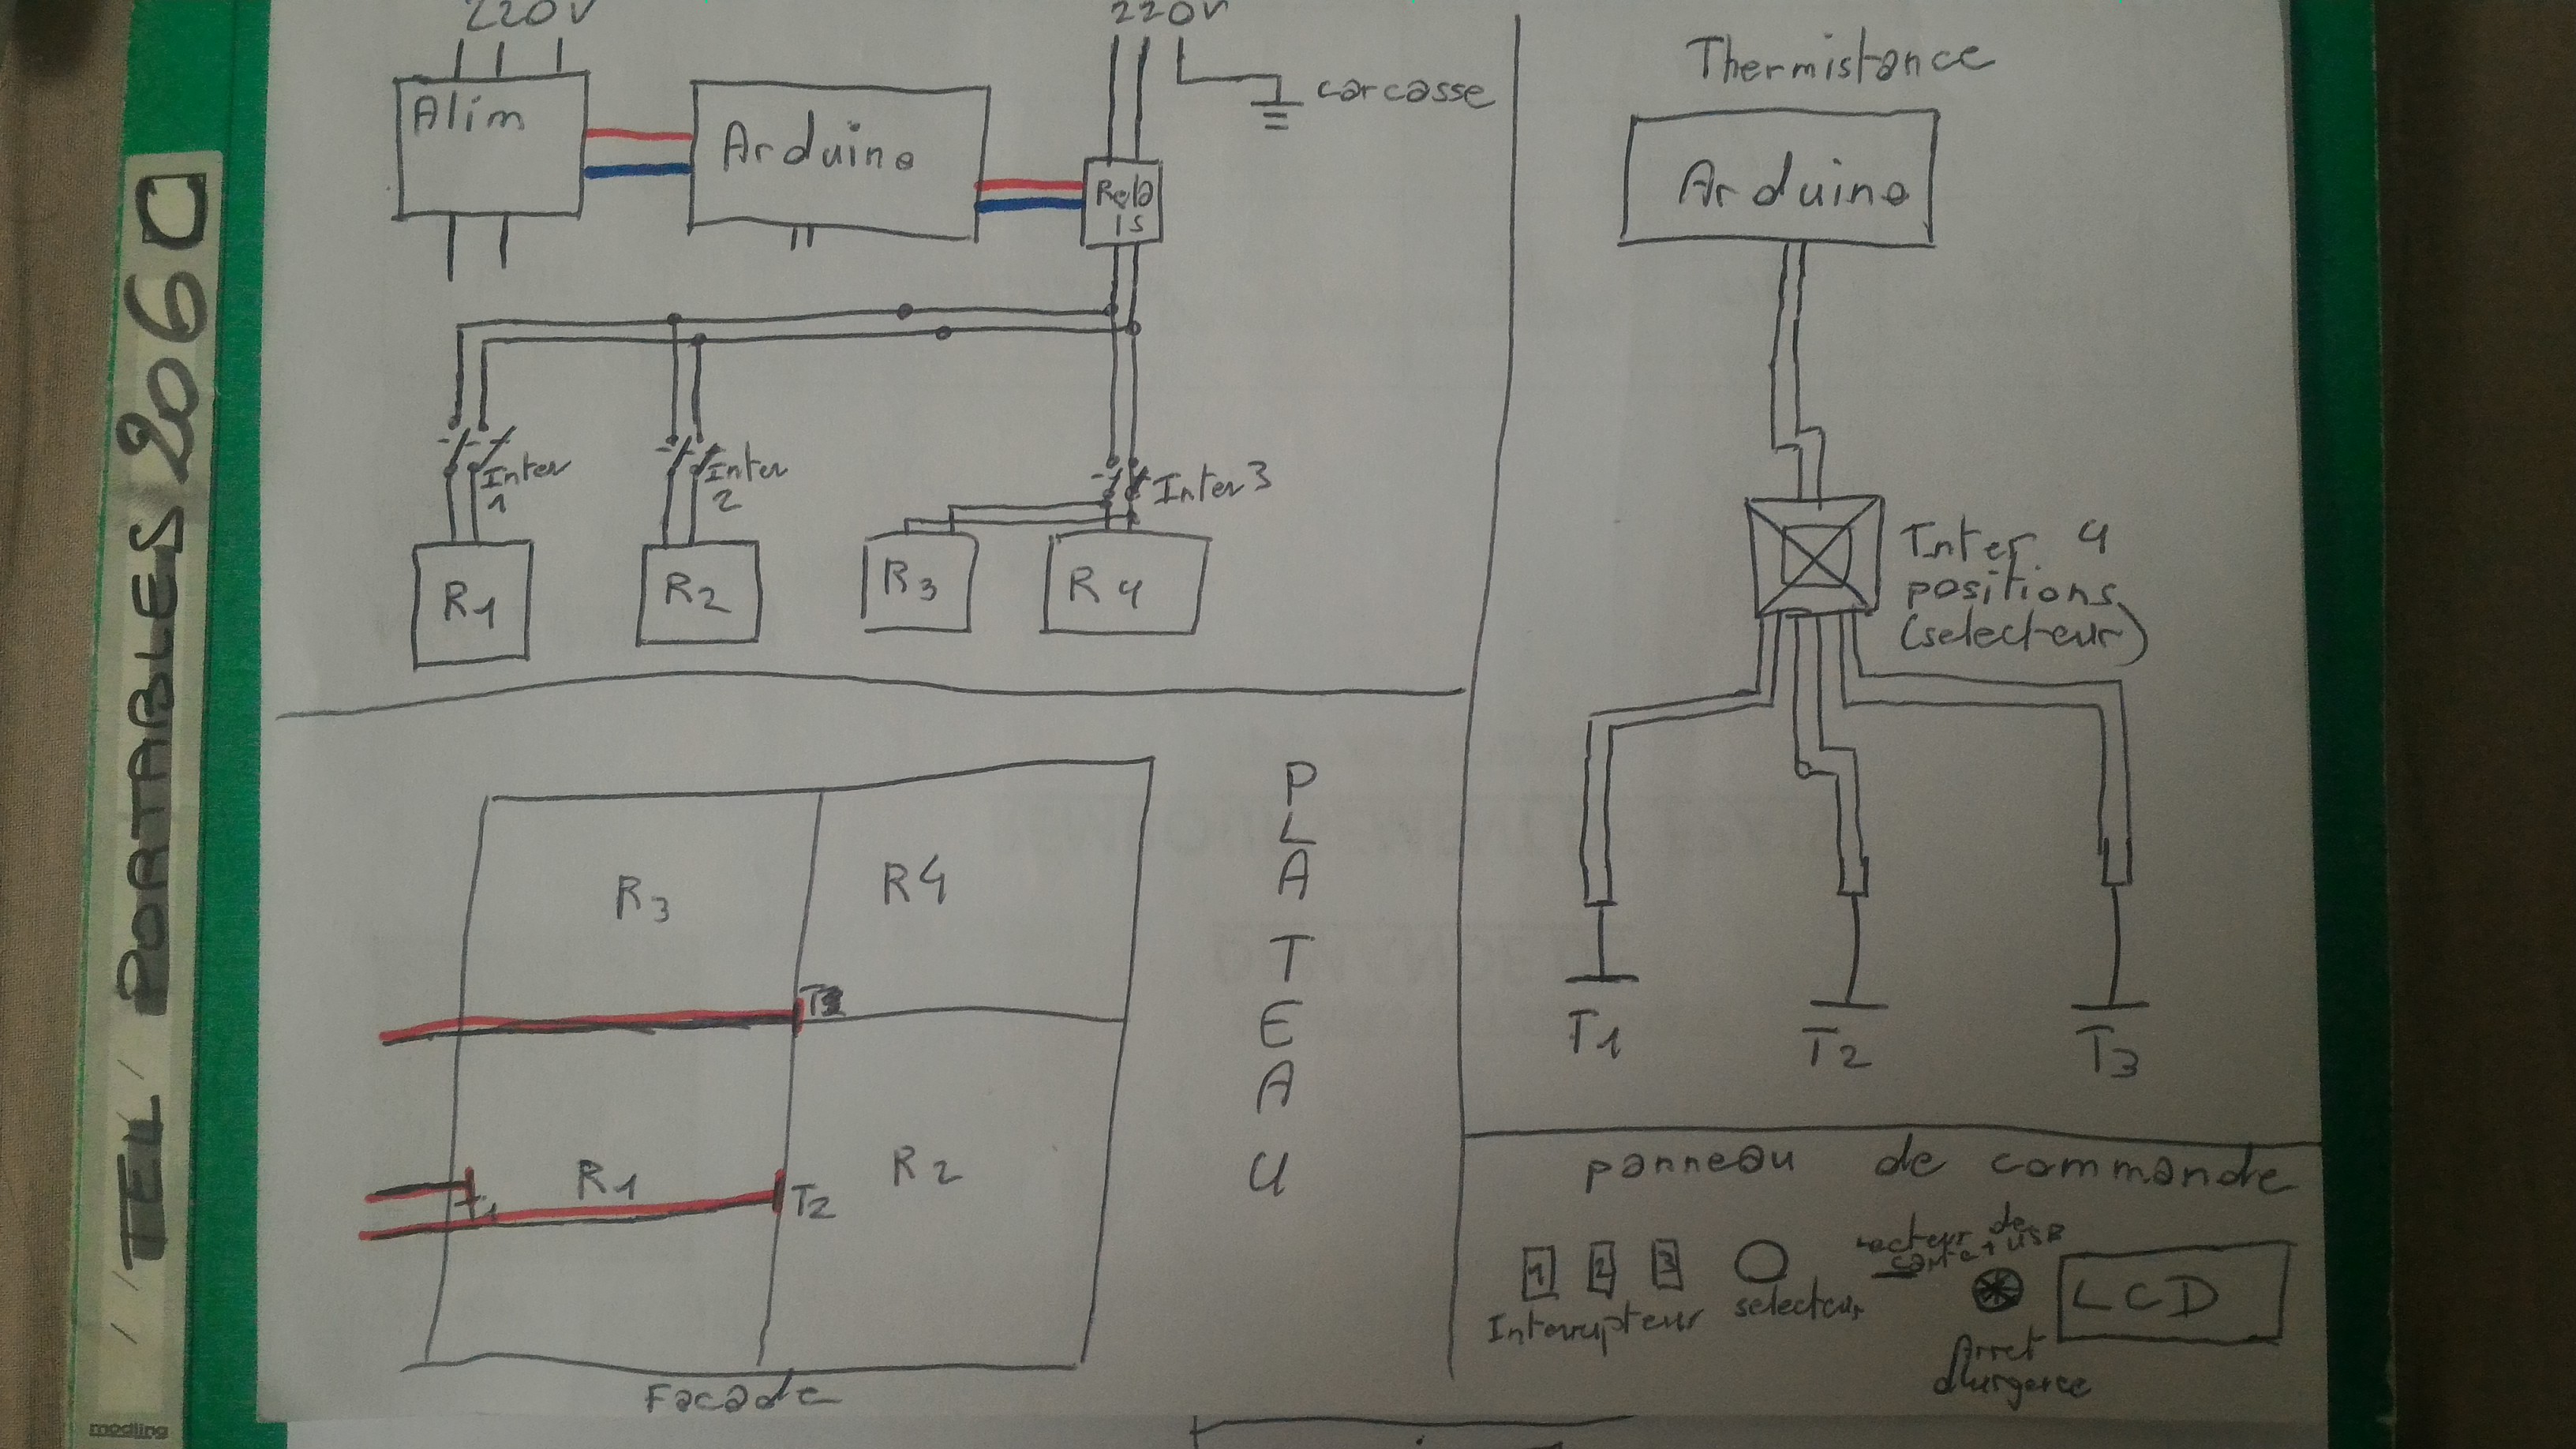 220V
Alim
Arduino
220V
carcasse
Rela
is
Inter
1
Inter
2
Inter 3
R1
R2
R3
R4
Thermistance
Arduino
Inter 4
positions
(selecteur)
T1
T2
T3
R3
R4
R1
T2
R2
PLATEAU
Facade
panneau de commande
1 2 3
Interrupteur
selecteur
Lecteur de
carte + USB
Arret
d'urgence
LCD
TEL PORTABLES 2060
modling